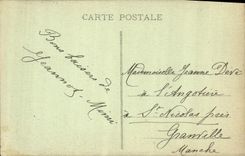 CARTE POSTALE
Bons baisers de
Jeannot. Mimi
Mademoiselle Jeanne Deve
à l'Angotière
à St Nicolas près
Granville
Manche